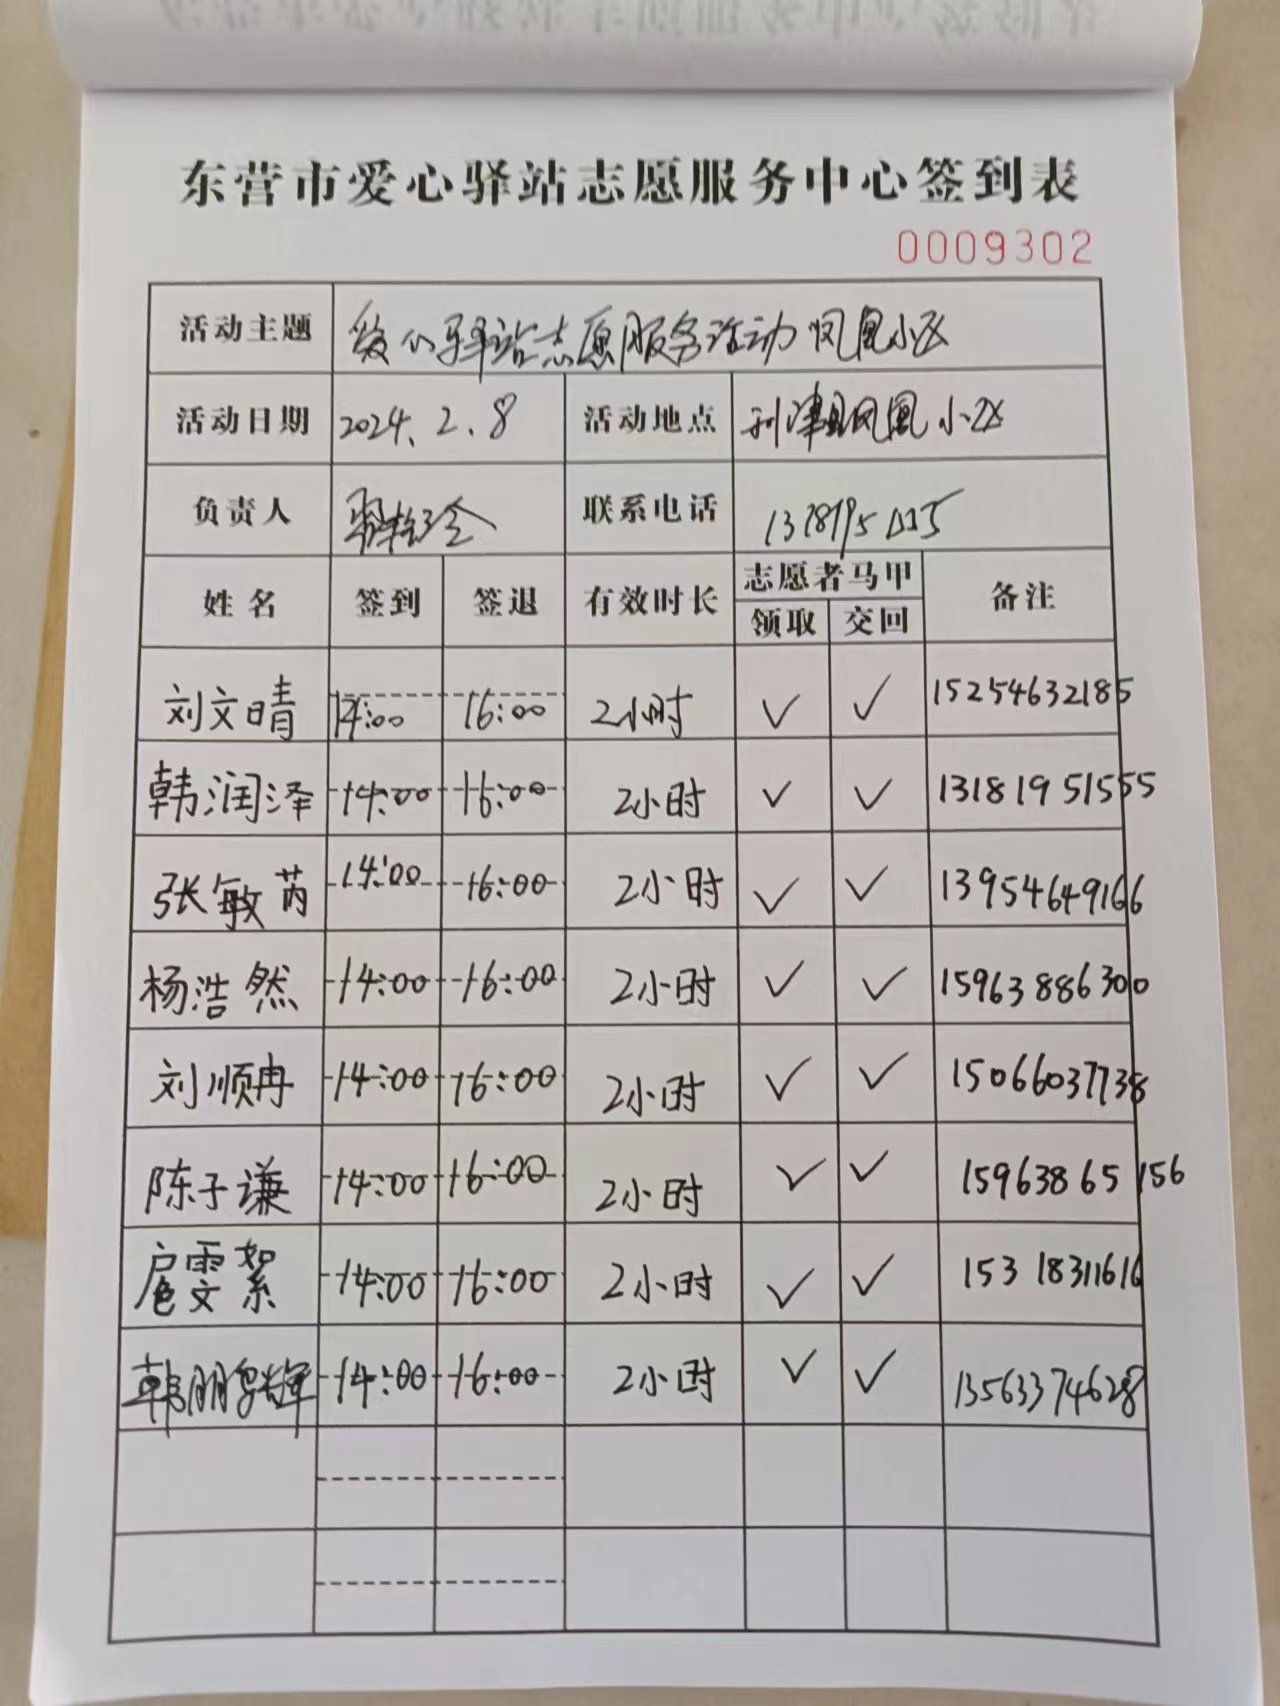 东营市爱心驿站志愿服务中心签到表
0009302
活动主题 爱心驿站志愿服务活动 凤凰小区
活动日期 2024.2.8 活动地点 利津县凤凰小区
负责人 联系电话
姓名 签到 签退 有效时长 志愿者马甲 备注
领取 交回
刘文晴 14:00 16:00 2小时 ✓ ✓ 15254632185
韩润泽 14:00 16:00 2小时 ✓ ✓ 13181951555
张敏芮 14:00 16:00 2小时 ✓ ✓ 13954649166
杨浩然 14:00 16:00 2小时 ✓ ✓ 15963886300
刘顺冉 14:00 16:00 2小时 ✓ ✓ 15066037738
陈子谦 14:00 16:00 2小时 ✓ ✓ 15963865156
扈雯絮 14:00 16:00 2小时 ✓ ✓ 15318311616
韩鹏辉 14:00 16:00 2小时 ✓ ✓ 13563374628